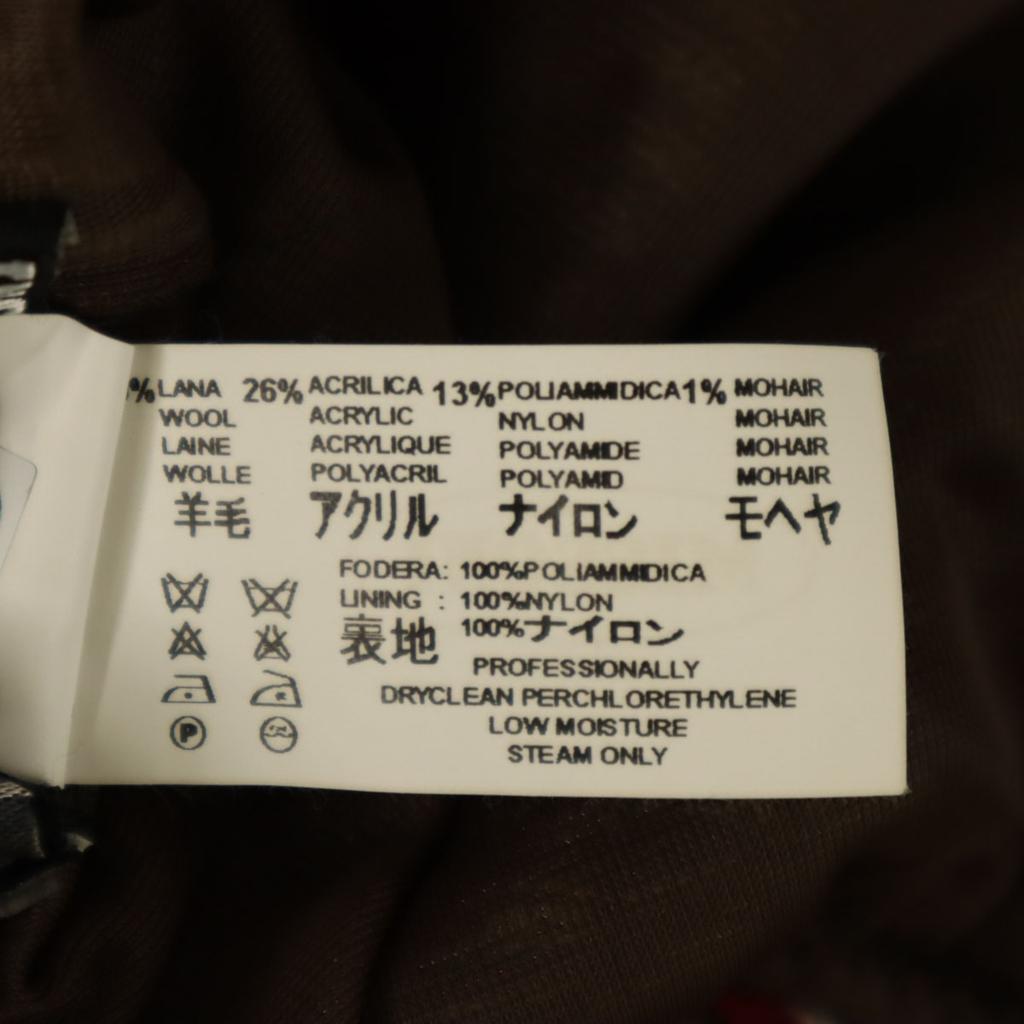 % LANA 26% ACRILICA 13% POLIAMMIDICA 1% MOHAIR
WOOL ACRYLIC NYLON MOHAIR
LAINE ACRYLIQUE POLYAMIDE MOHAIR
WOLLE POLYACRIL POLYAMID MOHAIR
羊毛 アクリル ナイロン モヘヤ
FODERA: 100%POLIAMMIDICA
LINING : 100%NYLON
裏地 100%ナイロン
PROFESSIONALLY
DRYCLEAN PERCHLORETHYLENE
LOW MOISTURE
STEAM ONLY
P